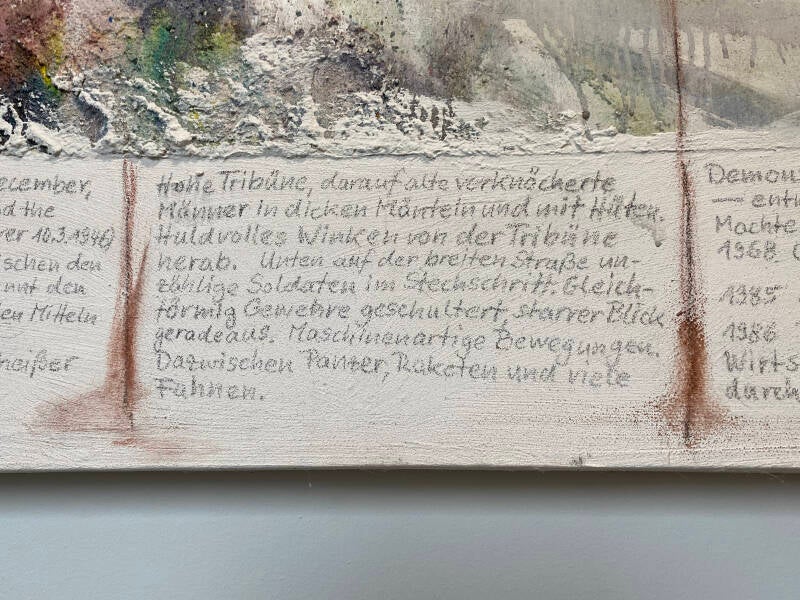 ecember,
d the
er 10.3.1946)
ischen den
nnt den
len Mitteln
heißer
Hohe Tribüne, darauf alte verknöcherte
Männer in dicken Mänteln und mit Hüten.
Huldvolles Winken von der Tribüne
herab. Unten auf der breiten Straße un-
zählige Soldaten im Stechschritt. Gleich-
förmig Gewehre geschultert, starrer Blick
geradeaus. Maschinenartige Bewegungen.
Dazwischen Panzer, Raketen und viele
Fahnen.
Demons
— entw
Machte
1968
1985
1986
Wirts
durch